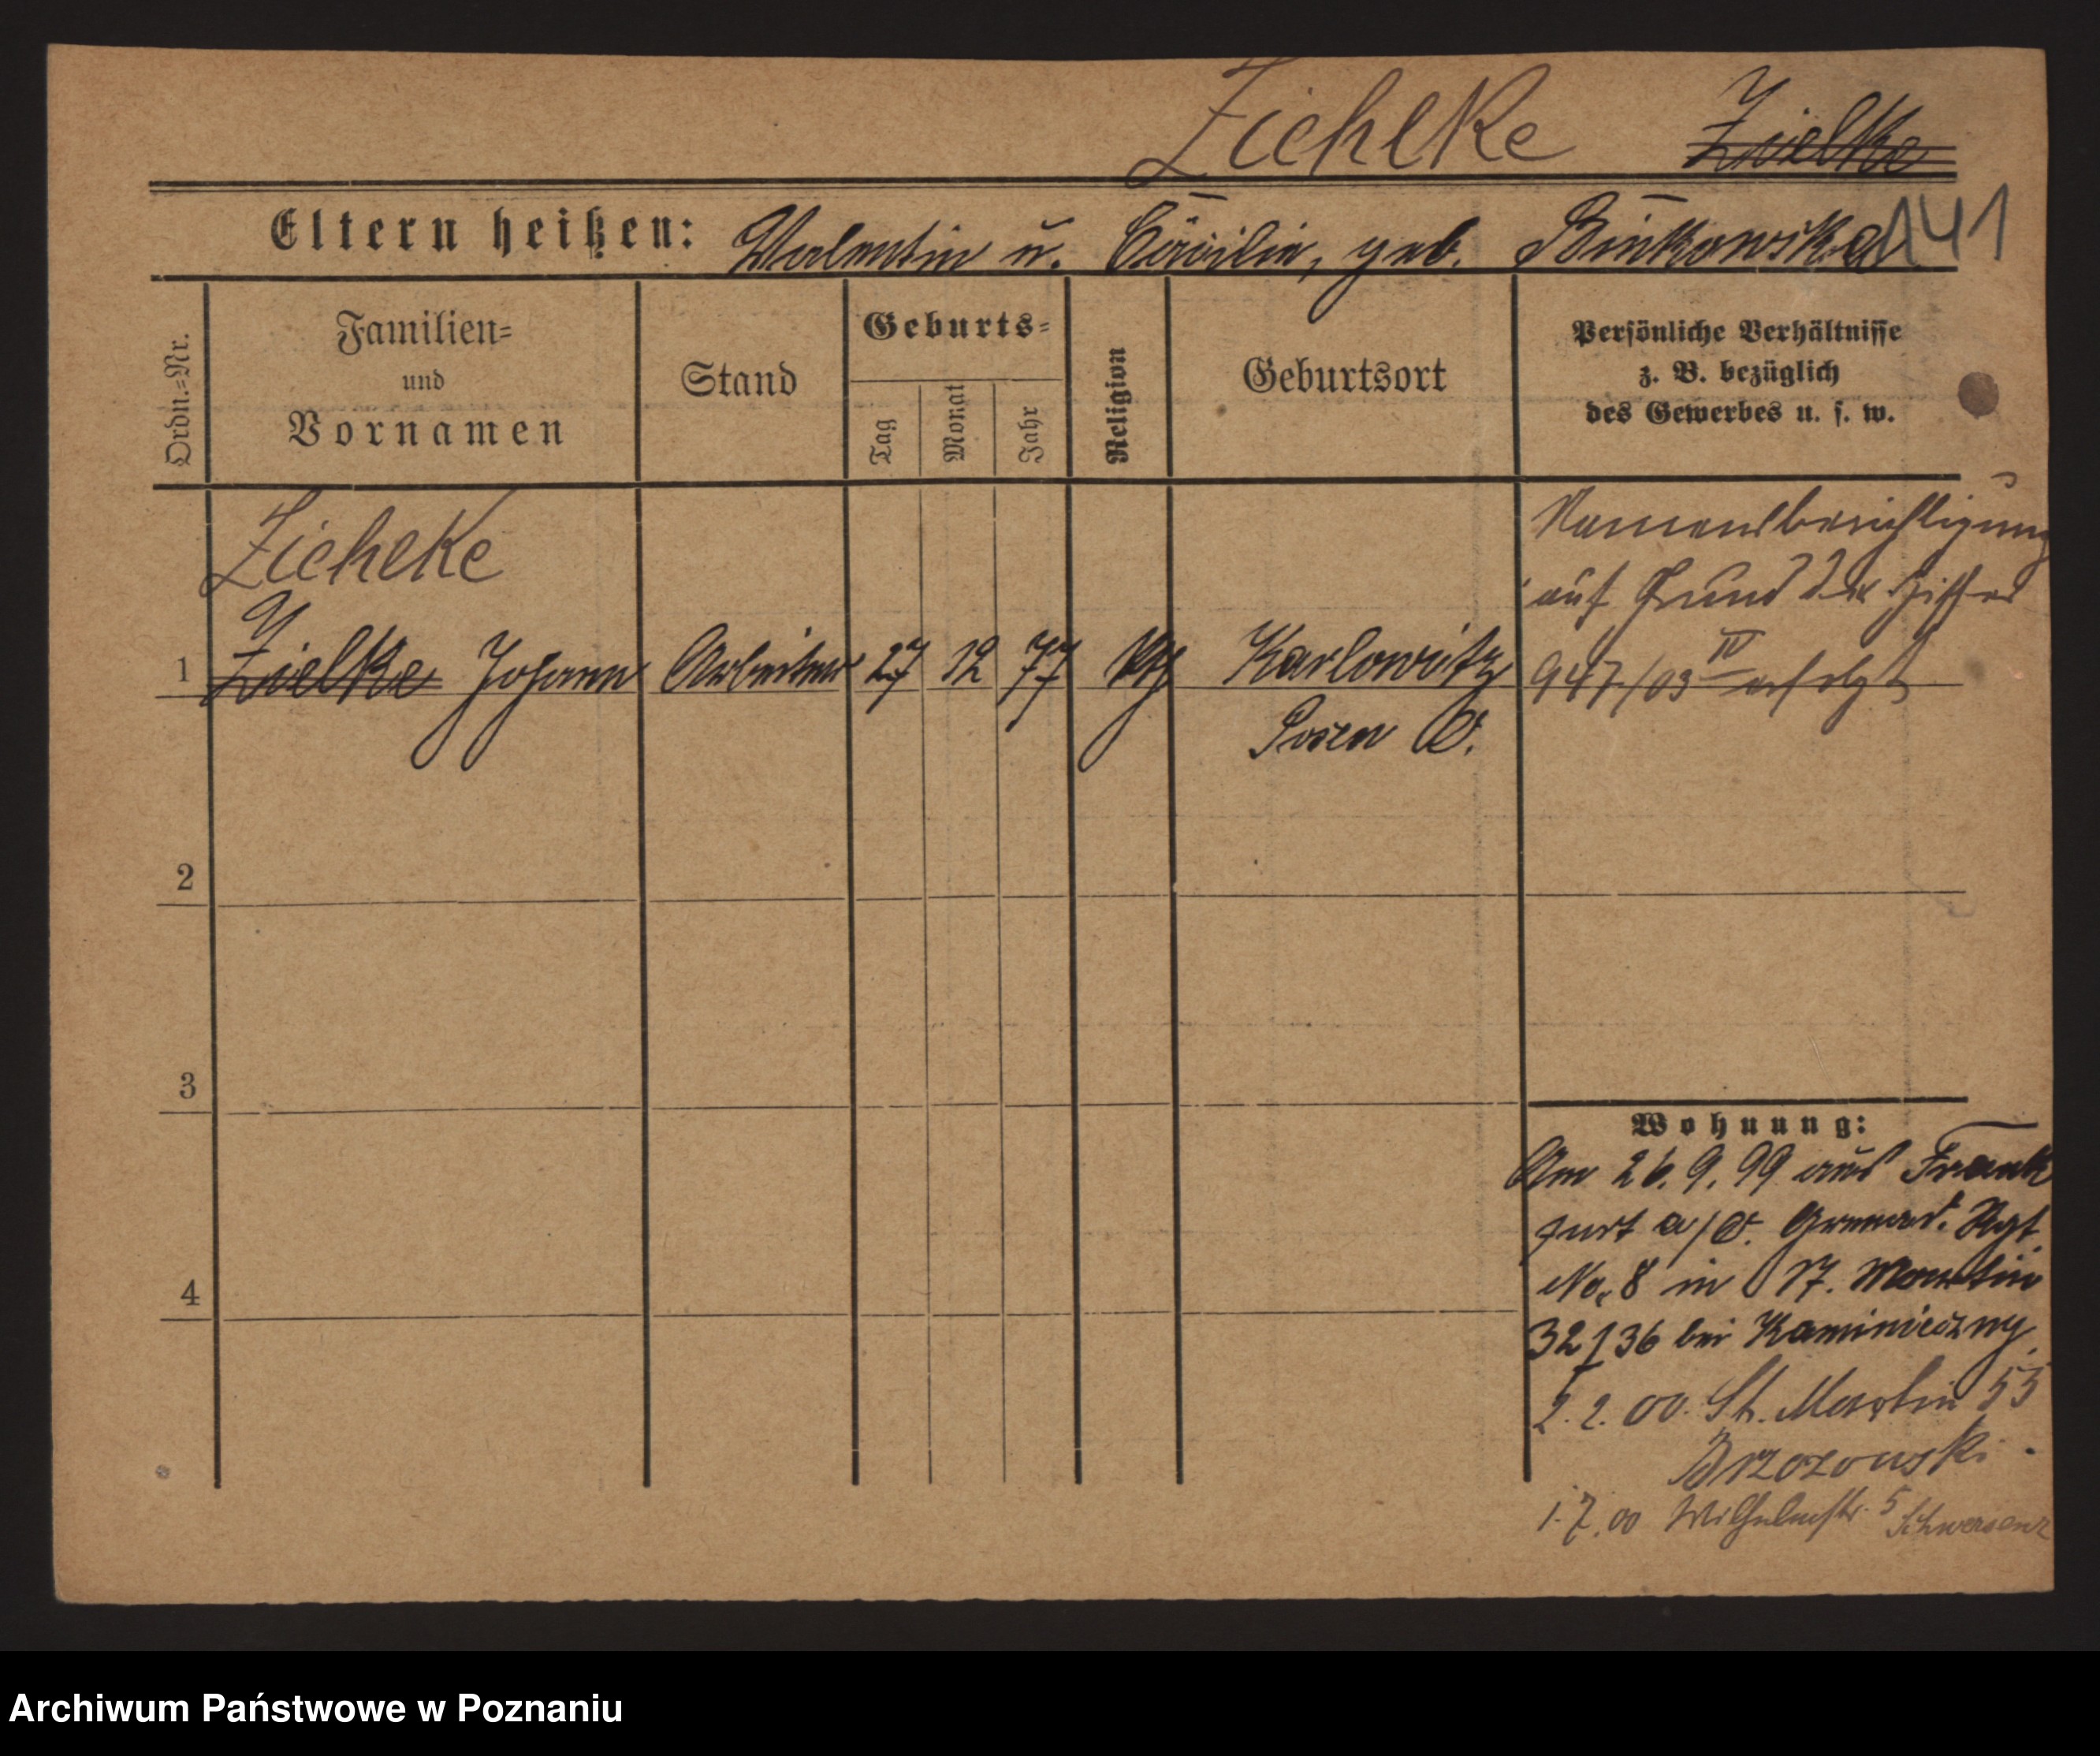 Ziehlke Zielke
Eltern heißen: Valentin u. Cäcilia, geb. Binkowska 141
Ordn.=Nr.
Familien=
und
Vornamen
Stand
Geburts=
Tag
Monat
Jahr
Religion
Geburtsort
Persönliche Verhältnisse
z. B. bezüglich
des Gewerbes u. s. w.
Ziehlke
1 Zielke Johann Arbeiter 27 12 77 kth Karlowitz
Posen O.
Namensberichtigung
auf Grund der Ziffer
947/03 IV erfolgt
2
3
4
Wohnung:
Am 26.9.99 aus Frank
furt a/O. Grenad. Rgt
No. 8 in St. Martin
32/36 bei Kaminiczny
2.2.00. St. Martin 55
Brzozowski.
1.7.00 Wilhelmstr. 5 Schwersenz
Archiwum Państwowe w Poznaniu